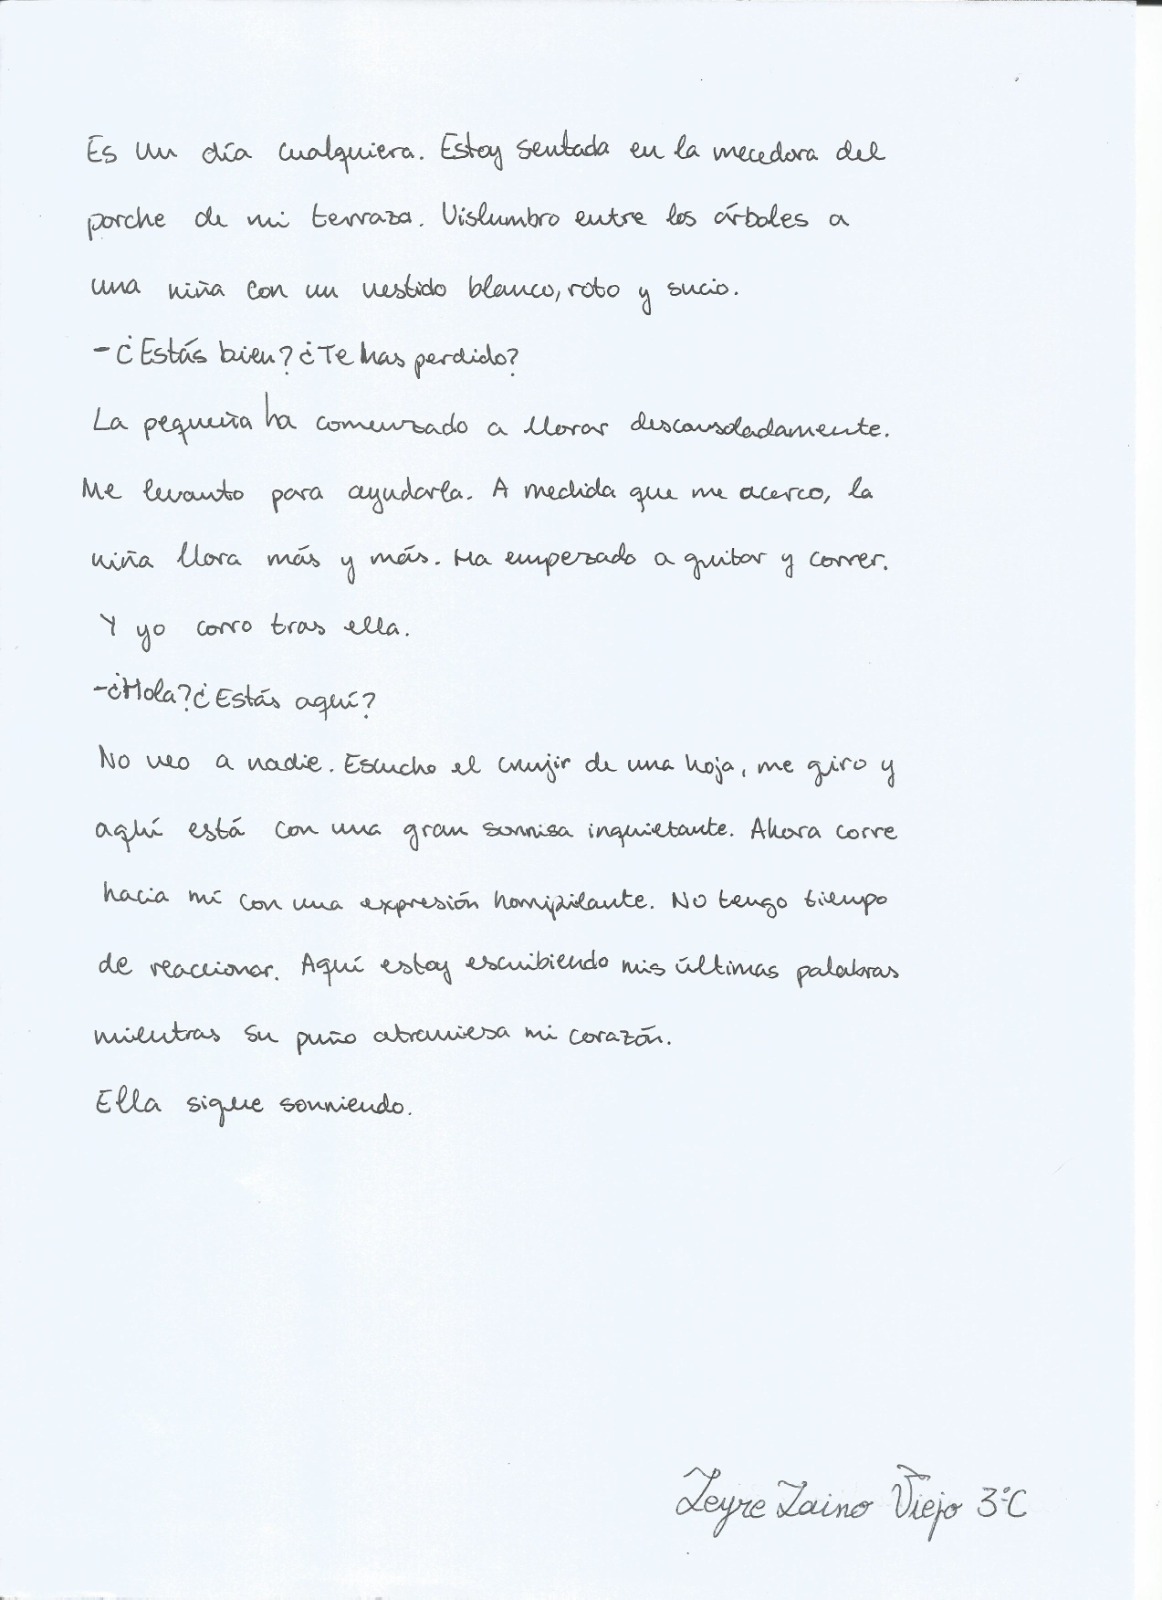 Es un día cualquiera. Estoy sentada en la mecedora del
porche de mi terraza. Vislumbro entre los árboles a
una niña con un vestido blanco, roto y sucio.
-¿Estás bien? ¿Te has perdido?
La pequeña ha comenzado a llorar desconsoladamente.
Me levanto para ayudarla. A medida que me acerco, la
niña llora más y más. Ha empezado a gritar y correr.
Y yo corro tras ella.
-¿Hola? ¿Estás aquí?
No veo a nadie. Escucho el crujir de una hoja, me giro y
aquí está con una gran sonrisa inquietante. Ahora corre
hacia mí con una expresión horripilante. No tengo tiempo
de reaccionar. Aquí estoy escribiendo mis últimas palabras
mientras su puño atraviesa mi corazón.
Ella sigue sonriendo.
Leyre Zaino Viejo 3ºC